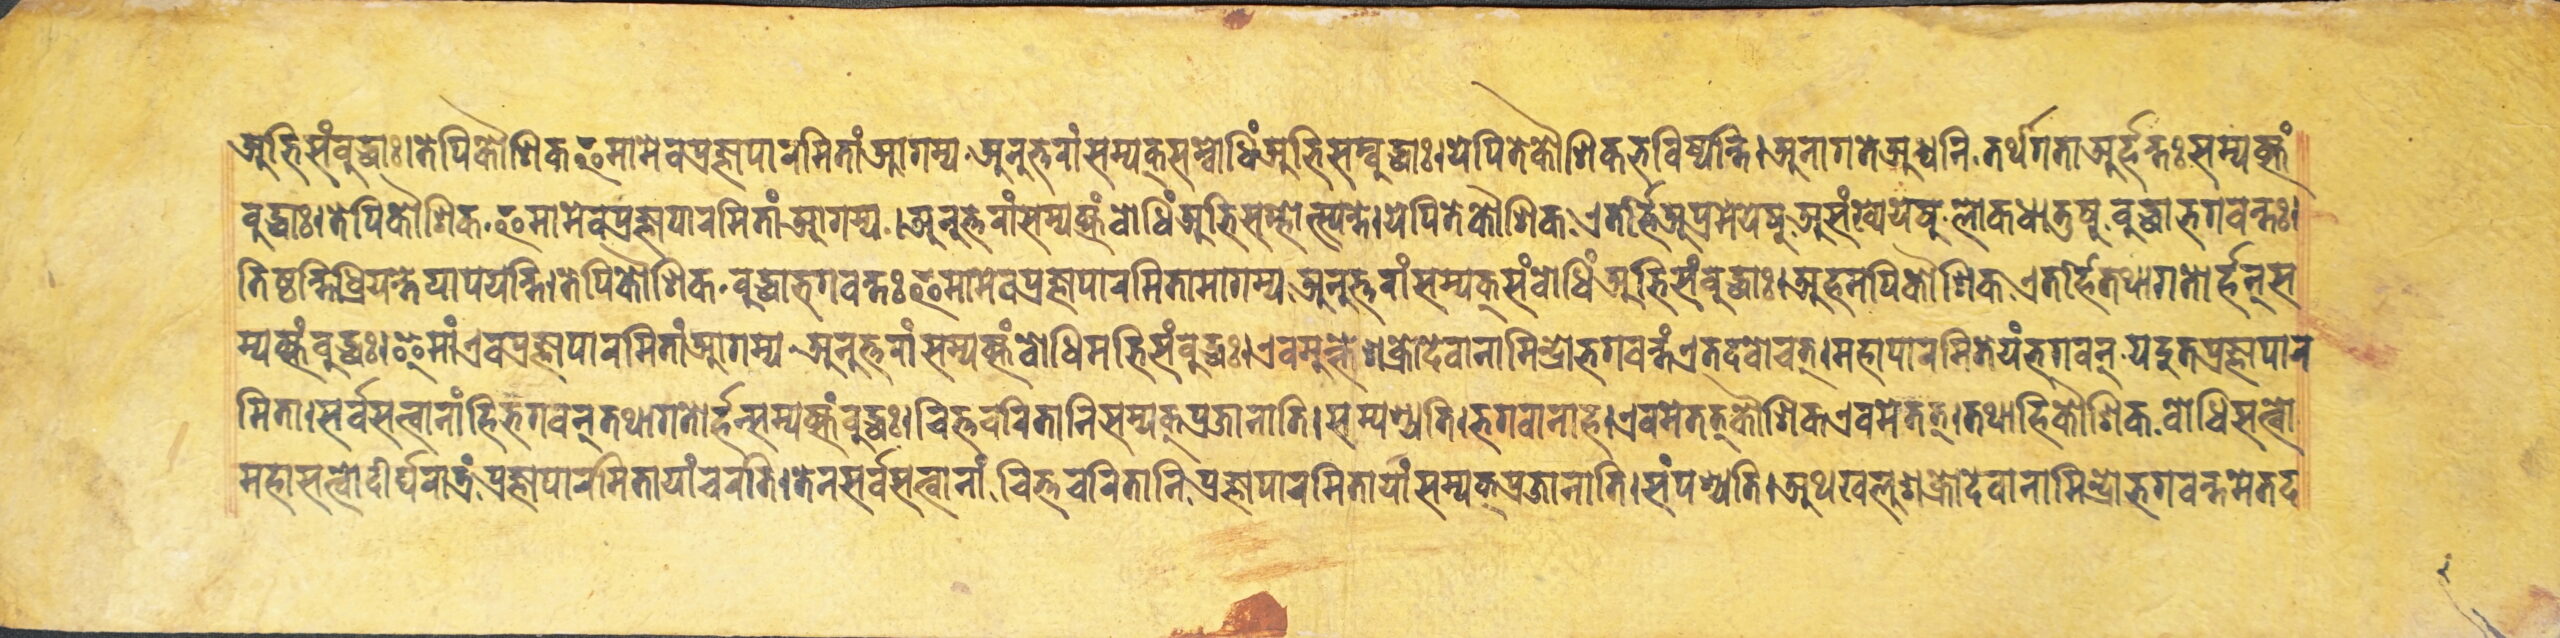 अभिसंबुद्धाः।तेपिकौशिकइमामेवप्रज्ञापारमितांआगम्य·अनुत्तरांसम्यक्सम्बोधिंअभिसम्बुद्धाः।येपितेकौशिकभविष्यन्ति।अनागतेअध्वनि·तथागताअर्हन्तःसम्यक्सं
बुद्धाः।तेपिकौशिक·इमामेवप्रज्ञापारमितांआगम्य·।अनुत्तरांसम्यक्संबोधिंअभिसम्भोत्स्यन्ते।येपितेकौशिक·एतर्हिअप्रमेयेषु·असंख्येयेषु·लोकधातुषु·बुद्धाभगवन्तः।
तिष्ठन्तिध्रियन्तेयापयन्ति।तेपिकौशिक·बुद्धाभगवन्तःइमामेवप्रज्ञापारमितामागम्य·अनुत्तरांसम्यक्संबोधिंअभिसंबुद्धाः।अहमपिकौशिक·एतर्हितथागतोर्हन्स
म्यक्संबुद्धः।इमांएवप्रज्ञापारमितांआगम्य·अनुत्तरांसम्यक्संबोधिमभिसंबुद्धः।एवमुक्तेशक्रोदेवानामिन्द्रोभगवन्तंएतदवोचत्।महापारमितेयंभगवन्·यदुतप्रज्ञापार
मिता।सर्वसत्वानांहिभगवन्तथागतोर्हन्सम्यक्संबुद्धः।चित्तचरितानिसम्यक्प्रजानाति।सम्पश्यति।भगवानाह।एवमेतत्कौशिकएवमेतत्।तथाहिकौशिक·बोधिसत्वो
महासत्वोदीर्घरात्रं·प्रज्ञापारमितायांचरति।तेनसर्वसत्वानां·चित्तचरितानि·प्रज्ञापारमितायांसम्यक्प्रजानाति।संपश्यति।अथखलुशक्रोदेवानामिन्द्रोभगवन्तमेतद